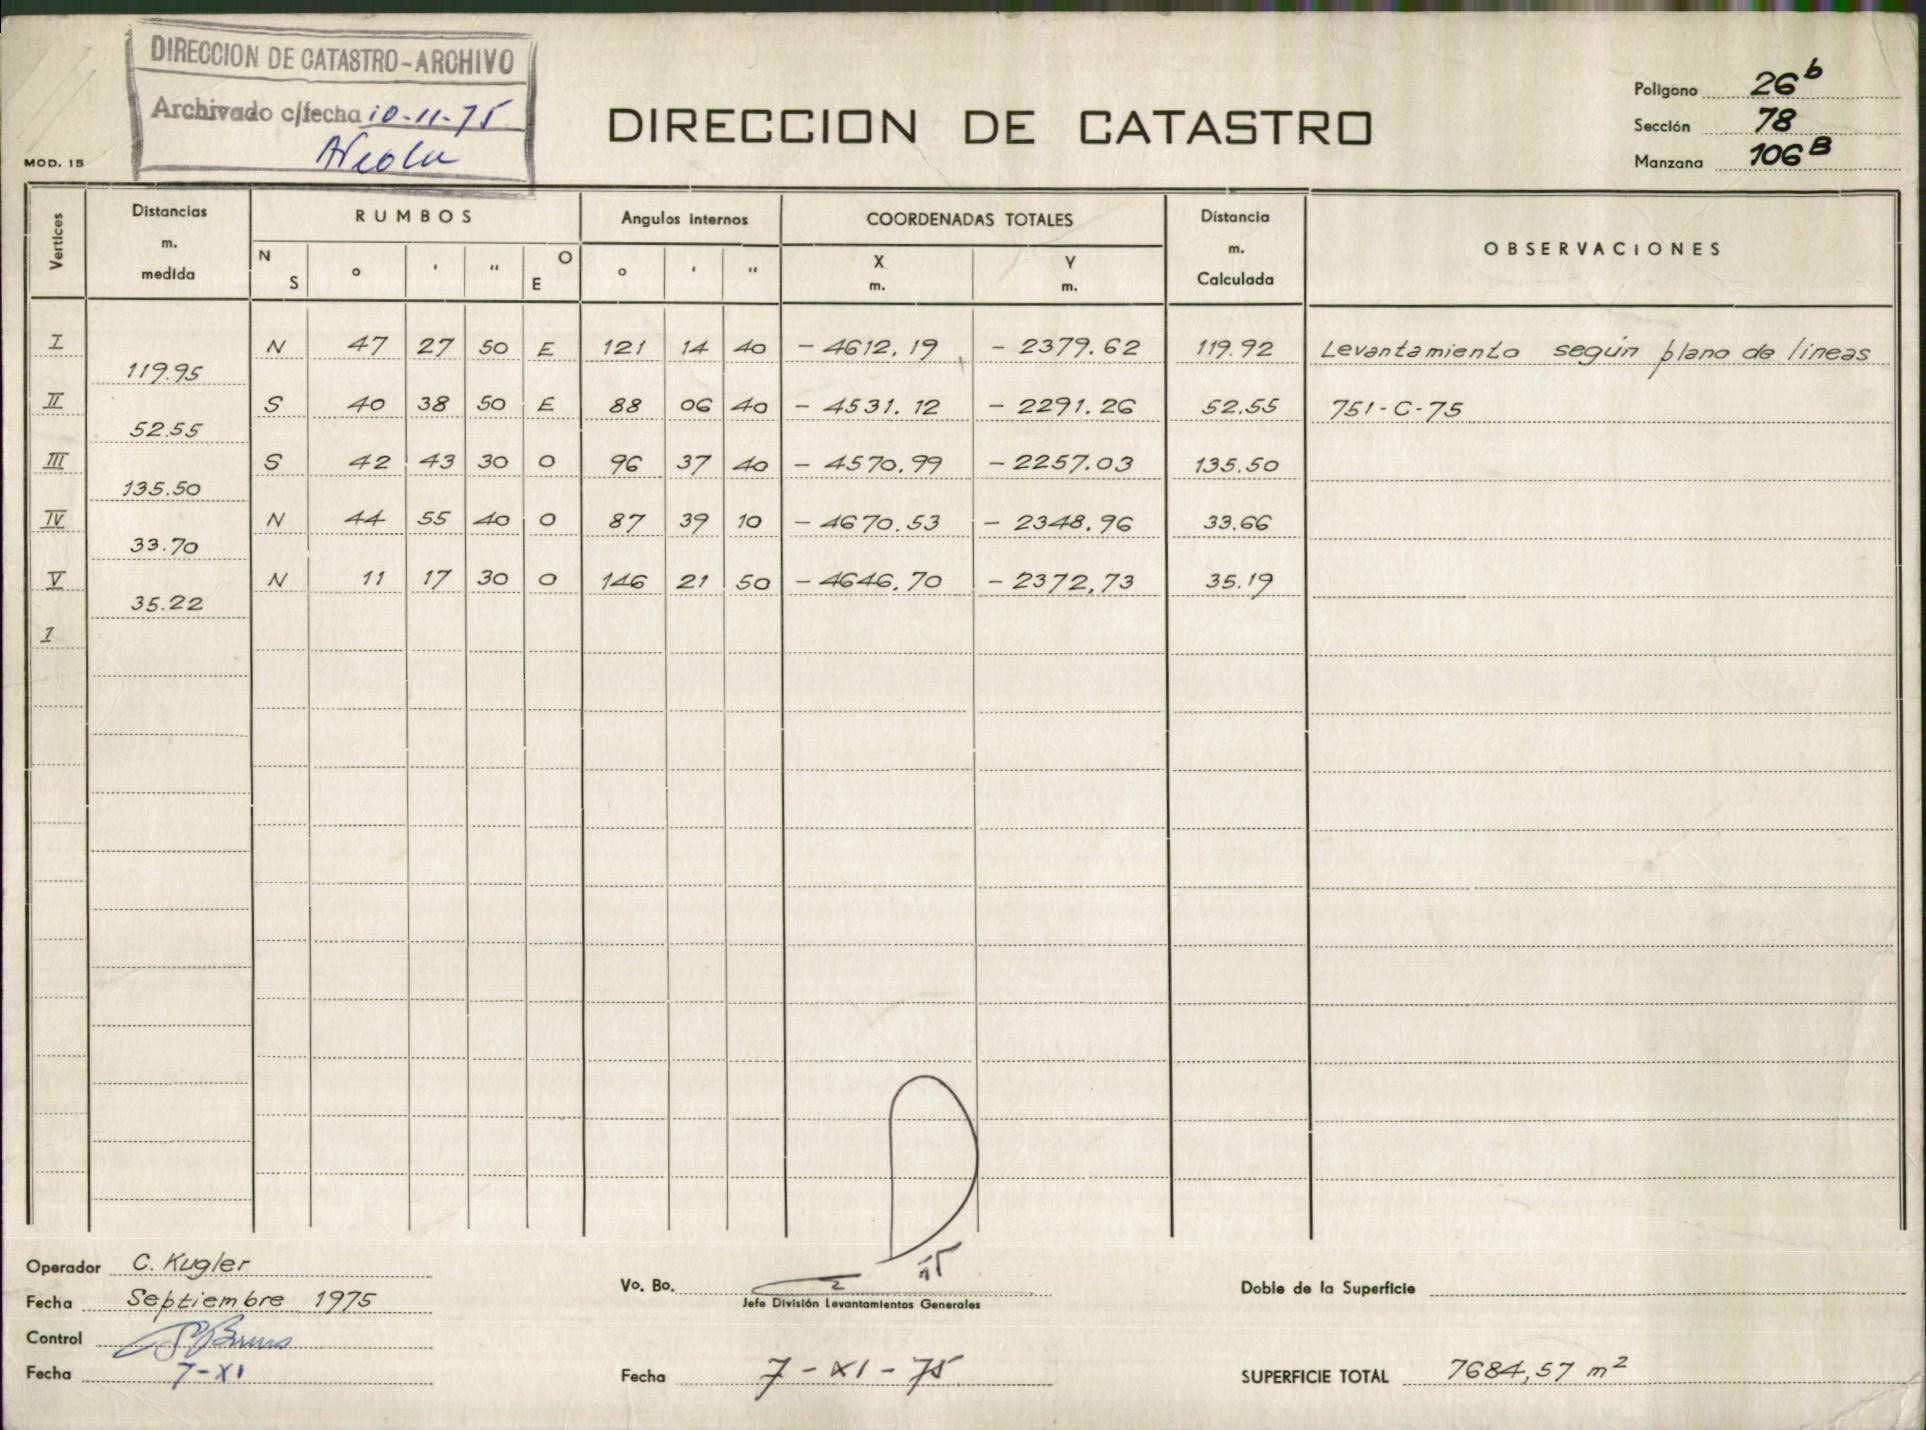 DIRECCION DE CATASTRO-ARCHIVO
Archivado c/fecha 10-11-75
MOD. 15
DIRECCION DE CATASTRO
Poligono 26 b
Sección 78
Manzana 106 B
Vertices
Distancias m. medida
RUMBOS
N S ° ' " O E
Angulos internos
° ' "
COORDENADAS TOTALES
X m.
Y m.
Distancia m. Calculada
OBSERVACIONES
I N 47 27 50 E 121 14 40 - 4612,19 - 2379.62 119.92 Levantamiento según plano de líneas
119.95
II S 40 38 50 E 88 06 40 - 4531.12 - 2291.26 52.55 751-C-75
52.55
III S 42 43 30 O 96 37 40 - 4570.99 - 2257.03 135.50
135.50
IV N 44 55 40 O 87 39 10 - 4670.53 - 2348.96 33.66
33.70
V N 11 17 30 O 146 21 50 - 4646.70 - 2372,73 35.19
35.22
I
Operador C. Kugler
Fecha Septiembre 1975
Control
Fecha 7-XI
Vo. Bo.
Jefe División Levantamientos Generales
Fecha 7-XI-75
Doble de la Superficie
SUPERFICIE TOTAL 7684,57 m²